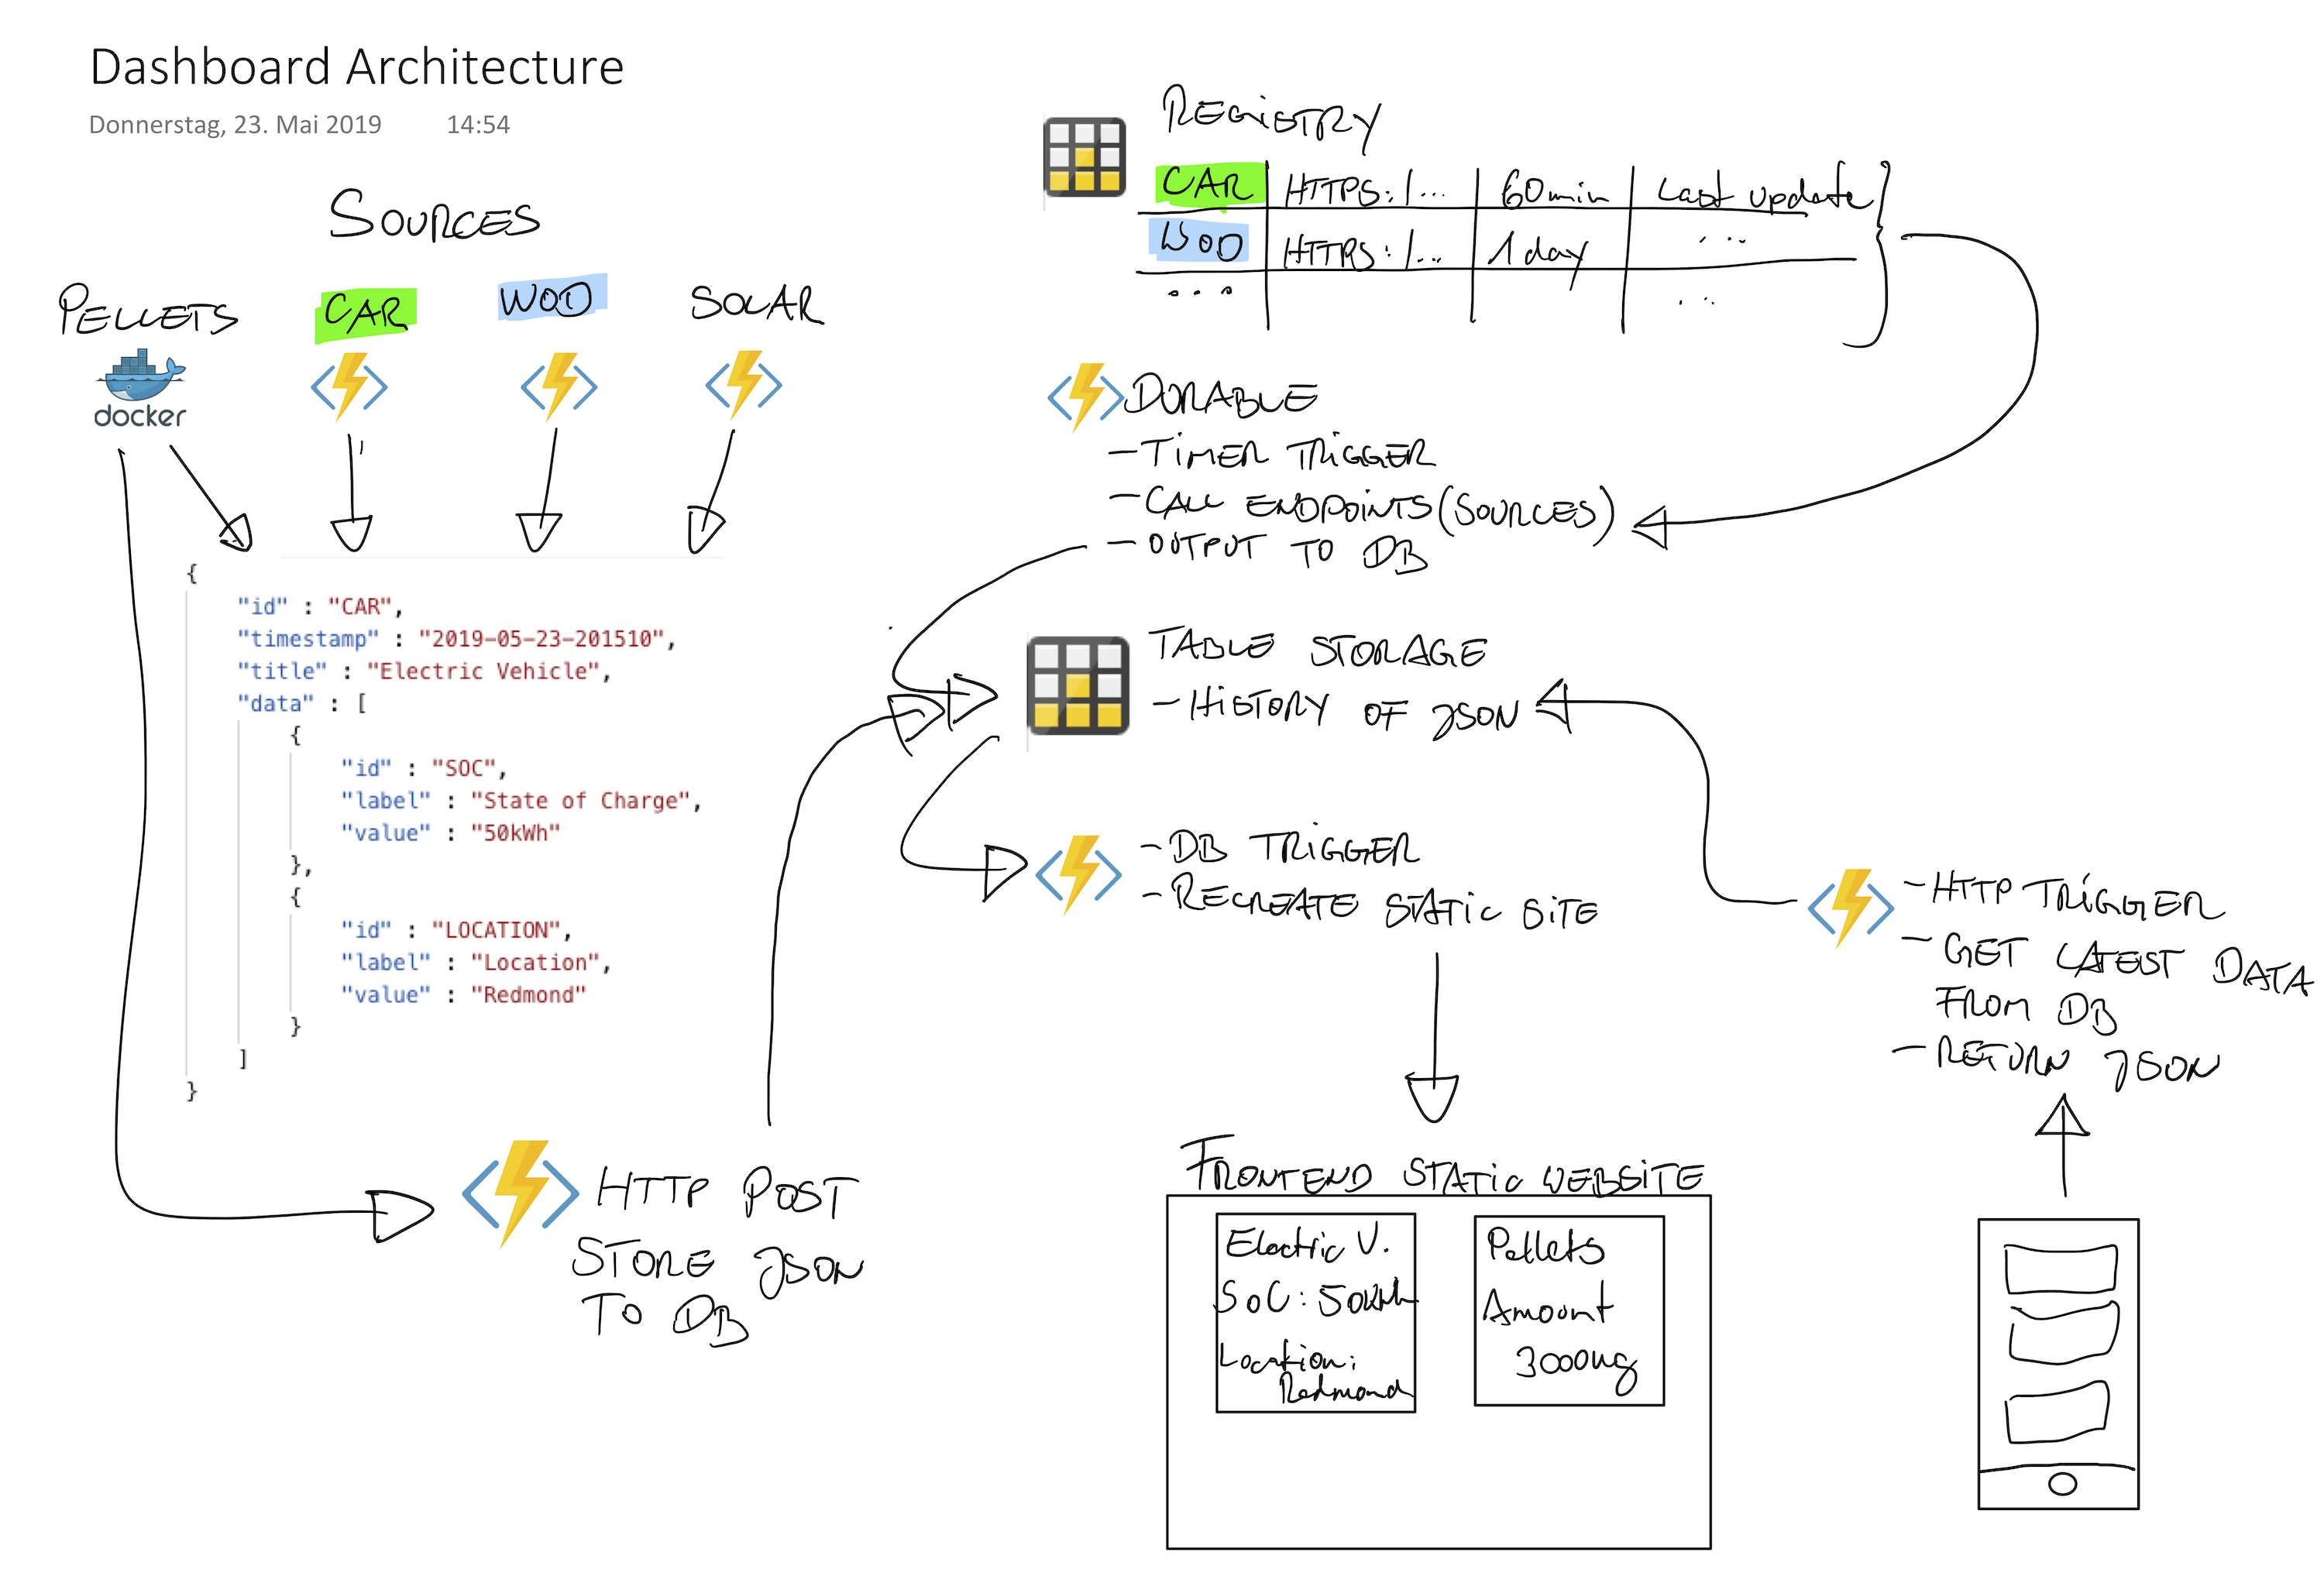 Dashboard Architecture
Donnerstag, 23. Mai 2019 14:54
SOURCES
PELLETS CAR WOD SOLAR
docker
{
"id" : "CAR",
"timestamp" : "2019-05-23-201510",
"title" : "Electric Vehicle",
"data" : [
{
"id" : "SOC",
"label" : "State of Charge",
"value" : "50kWh"
},
{
"id" : "LOCATION",
"label" : "Location",
"value" : "Redmond"
}
]
}
HTTP POST
STORE JSON
TO DB
REGISTRY
CAR HTTPS:/... 60min Last update
WOD HTTPS:/... 1 day ...
... ...
DURABLE
- TIMER TRIGGER
- CALL ENDPOINTS (SOURCES)
- OUTPUT TO DB
TABLE STORAGE
- HISTORY OF JSON
- DB TRIGGER
- RECREATE STATIC SITE
FRONTEND STATIC WEBSITE
Electric V.
SoC: 50kWh
Location:
Redmond
Pellets
Amount
3000kg
- HTTP TRIGGER
- GET LATEST DATA
FROM DB
- RETURN JSON